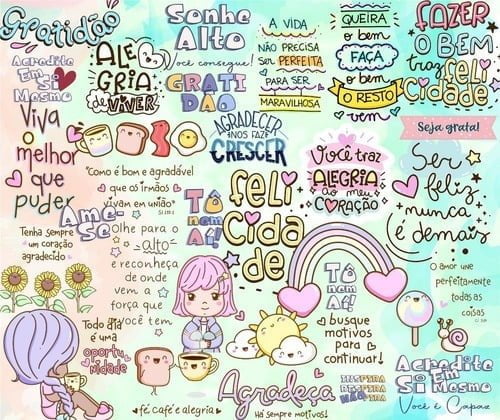 Gratidão
Acredite
Em Si
Mesmo
ALE
GRIA
de VIVER
Sonhe
Alto
você consegue!
GRATI
DÃO
A VIDA
NÃO PRECISA
SER PERFEITA
PARA SER
MARAVILHOSA
QUEIRA
o bem
FAÇA
o bem
O RESTO
vem
FAZER
O BEM
traz
feli
cidade
Seja grata!
Viva
o
melhor
que
puder
AGRADECER
NOS FAZ
CRESCER
Você traz
ALEGRIA
ao meu
CORAÇÃO
Ser
feliz
nunca
é demais
"Como é bom e agradável
que os irmãos
vivam em união"
Ame-
se
Tenha sempre
um coração
agradecido
Olhe para o
alto
e reconheça
de onde
vem a
força que
você tem
Tô
nem
Aí!
feli
cida
de
Tô
nem
Aí!
busque
motivos
para
continuar!
O amor une
perfeitamente
todas as
coisas
Todo dia
é uma
oportu
nidade
fé café e alegria
Agradeça
Há sempre motivos!
INSPIRA
RESPIRA
NÃO PIRA
Acredite
Em Si
Mesmo
Você é Capaz